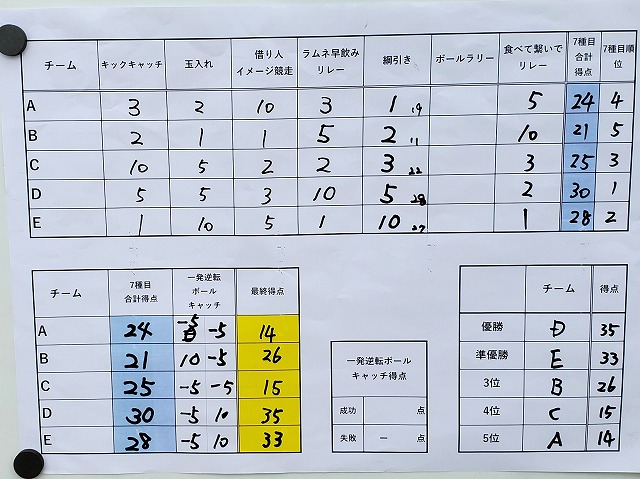 チーム キックキャッチ 玉入れ 借り人イメージ競走 ラムネ早飲みリレー 綱引き ボールラリー 食べて繋いでリレー 7種目合計得点 7種目順位
A 3 2 10 3 1 19 5 24 4
B 2 1 1 5 2 11 10 21 5
C 10 5 2 2 3 22 3 25 3
D 5 5 3 10 5 28 2 30 1
E 1 10 5 1 10 27 1 28 2
チーム 7種目合計得点 一発逆転ボールキャッチ 最終得点
A 24 -5 -5 14
B 21 10 -5 26
C 25 -5 -5 15
D 30 -5 10 35
E 28 -5 10 33
一発逆転ボール
キャッチ得点
成功 点
失敗 － 点
チーム 得点
優勝 D 35
準優勝 E 33
3位 B 26
4位 C 15
5位 A 14